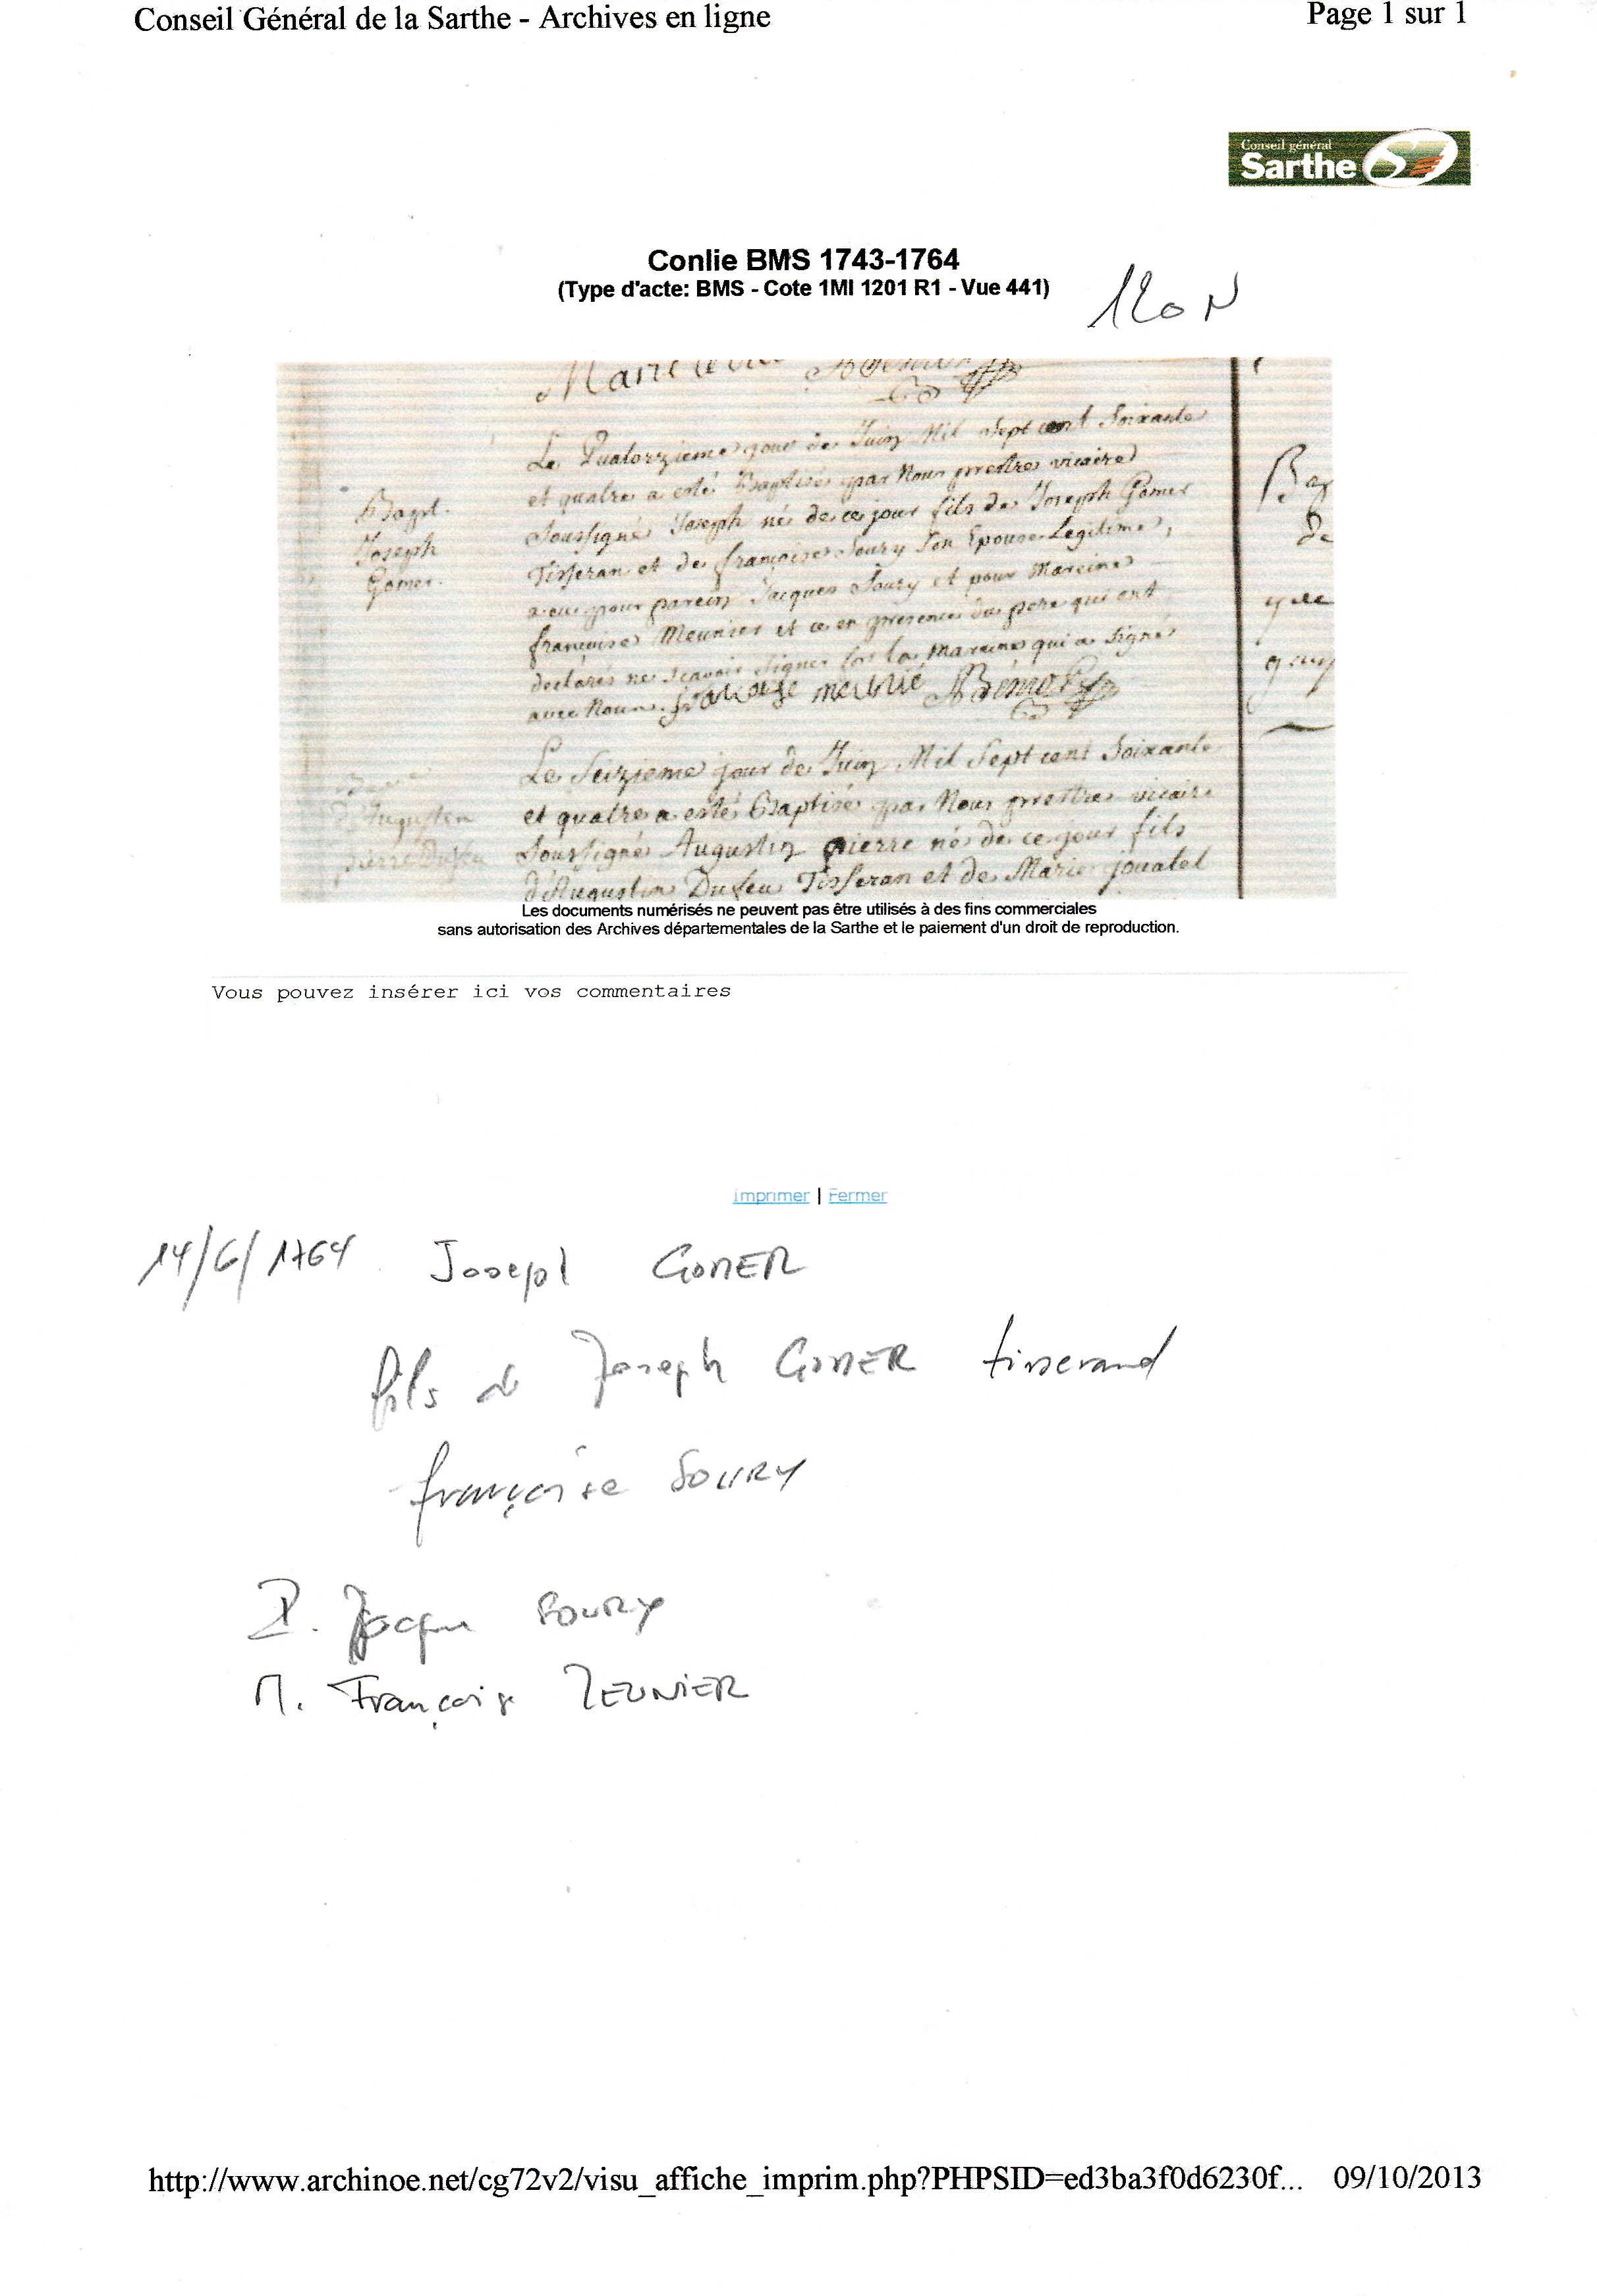 Conseil Général de la Sarthe - Archives en ligne
Page 1 sur 1
Conseil général
Sarthe
Conlie BMS 1743-1764
(Type d'acte: BMS - Cote 1MI 1201 R1 - Vue 441)
120 N
Marie
Le Quatorzieme jour de Juin Mil Sept cent Soixante
et quatre a esté Baptisé par Nous prestre vicaire
Soussigné Joseph né de ce jour fils de Joseph Gomer
Tisseran et de françoise Soury Son Epouse Legitime,
a eu pour parein Jacques Soury et pour Mareine
françoise Meunier et ce en presence du pere qui ont
declarés ne scavoir signer fors la Mareine qui a signé
avec Nous.
Bapt.
Joseph
Gomer.
Le Seizieme jour de Juin Mil Sept cent Soixante
et quatre a esté Baptisé par Nous prestre vicaire
Soussigné Augustin pierre né de ce jour fils
d'Augustin Dufeu Tisseran et de Marie jouatel
d'Augustin
pierre Dufeu
Bap
de
Les documents numérisés ne peuvent pas être utilisés à des fins commerciales
sans autorisation des Archives départementales de la Sarthe et le paiement d'un droit de reproduction.
Vous pouvez insérer ici vos commentaires
Imprimer | Fermer
14/6/1764 Joseph GOMER
fils de Joseph GOMER tisserand
françoise SOURY
P. Jacques SOURY
M. Françoise MEUNIER
http://www.archinoe.net/cg72v2/visu_affiche_imprim.php?PHPSID=ed3ba3f0d6230f... 09/10/2013